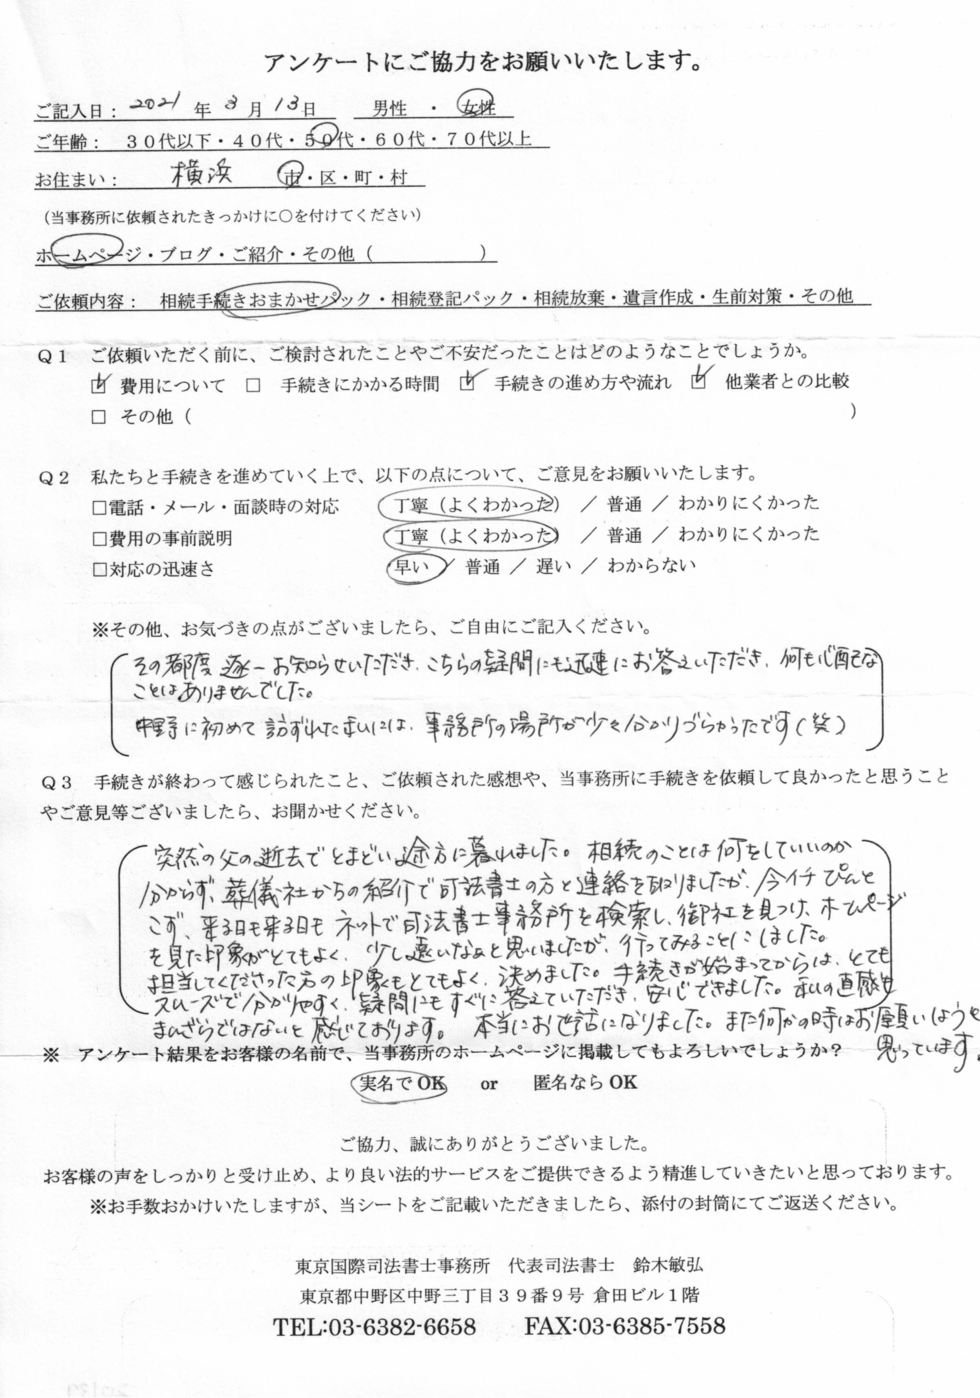 アンケートにご協力をお願いいたします。
ご記入日： 2021 年 3 月 13日　男性 ・ 女性
ご年齢： 30代以下・40代・50代・60代・70代以上
お住まい： 横浜　市・区・町・村
（当事務所に依頼されたきっかけに○を付けてください）
ホームページ・ブログ・ご紹介・その他（　　　　　）
ご依頼内容： 相続手続きおまかせパック・相続登記パック・相続放棄・遺言作成・生前対策・その他
Q1　ご依頼いただく前に、ご検討されたことやご不安だったことはどのようなことでしょうか。
☑ 費用について　□ 手続きにかかる時間　☑ 手続きの進め方や流れ　☑ 他業者との比較
□ その他（　　　　　）
Q2　私たちと手続きを進めていく上で、以下の点について、ご意見をお願いいたします。
□電話・メール・面談時の対応　丁寧（よくわかった） ／ 普通 ／ わかりにくかった
□費用の事前説明　丁寧（よくわかった） ／ 普通 ／ わかりにくかった
□対応の迅速さ　早い ／ 普通 ／ 遅い ／ わからない
※その他、お気づきの点がございましたら、ご自由にご記入ください。
その都度 逐一 お知らせいただき、こちらの疑問にも迅速にお答えいただき、何も心配な
ことはありませんでした。
中野に初めて訪ずれた身には、事務所の場所が少々分かりづらかったです（笑）
Q3　手続きが終わって感じられたこと、ご依頼された感想や、当事務所に手続きを依頼して良かったと思うこと
やご意見等ございましたら、お聞かせください。
突然の父の逝去でとまどい途方に暮れました。相続のことは何をしていいのか
分からず、葬儀社からの紹介で司法書士の方と連絡を取りましたが、今イチぴんと
こず、来る日も来る日も ネットで司法書士事務所を検索し、御社を見つけ、ホームページ
を見た印象がとてもよく、少し遠いなぁと思いましたが、行ってみることにしました。
担当してくださった方の印象もとてもよく、決めました。手続きが始まってからは、とても
スムーズで分かりやすく、疑問にもすぐに答えていただき、安心できました。私の直感も
まんざらではないと感じております。 本当にお世話になりました。また何かの時はお願いしようと
思っています。
※ アンケート結果をお客様の名前で、当事務所のホームページに掲載してもよろしいでしょうか？
実名でOK　or　匿名ならOK
ご協力、誠にありがとうございました。
お客様の声をしっかりと受け止め、より良い法的サービスをご提供できるよう精進していきたいと思っております。
※お手数おかけいたしますが、当シートをご記載いただきましたら、添付の封筒にてご返送ください。
東京国際司法書士事務所　代表司法書士　鈴木敏弘
東京都中野区中野三丁目39番9号 倉田ビル1階
TEL:03-6382-6658　FAX:03-6385-7558